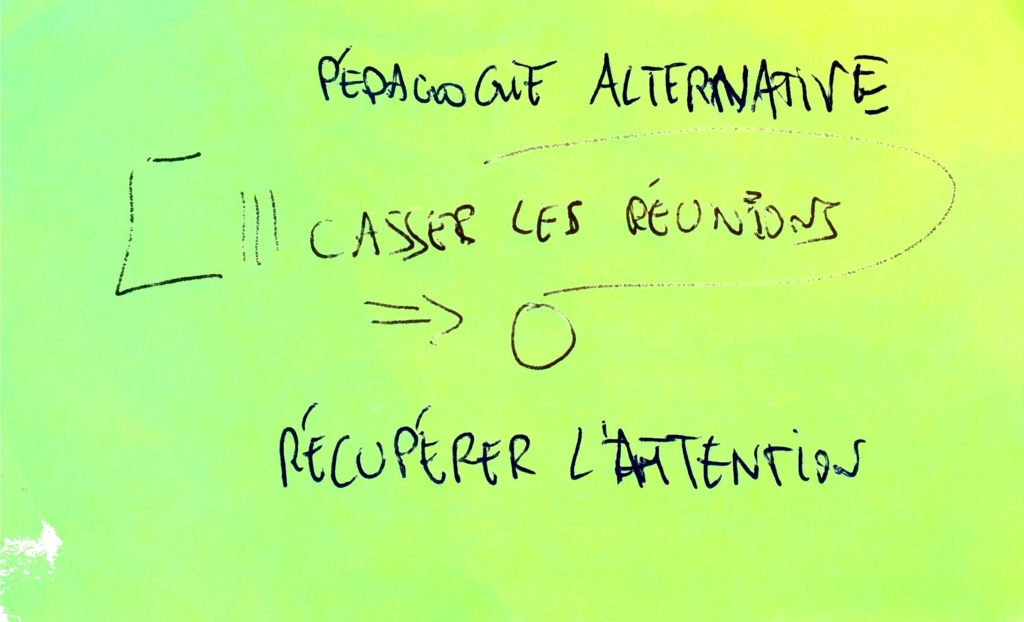 PÉDAGOGUE ALTERNATIVE
CASSER LES RÉUNIONS
=> O
RÉCUPÉRER L'ATTENTION